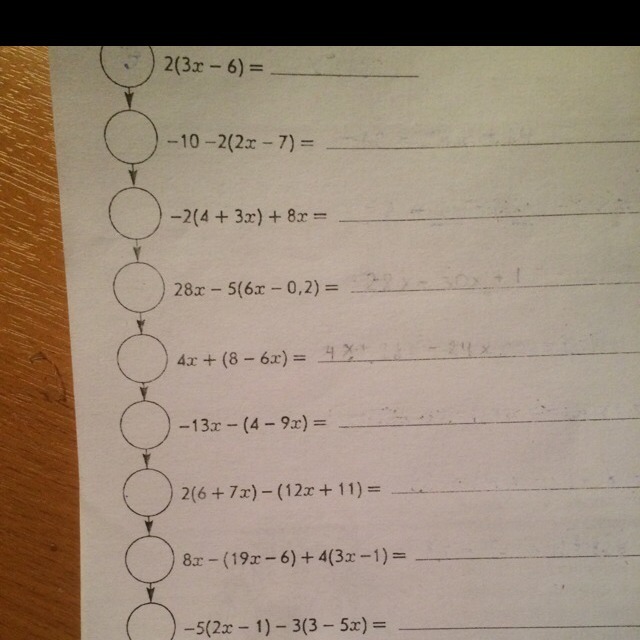 2(3x – 6) =
–10 –2(2x – 7) =
–2(4 + 3x) + 8x =
28x – 5(6x – 0,2) =
4x + (8 – 6x) =
–13x – (4 – 9x) =
2(6 + 7x) – (12x + 11) =
8x – (19x – 6) + 4(3x – 1) =
–5(2x – 1) – 3(3 – 5x) =